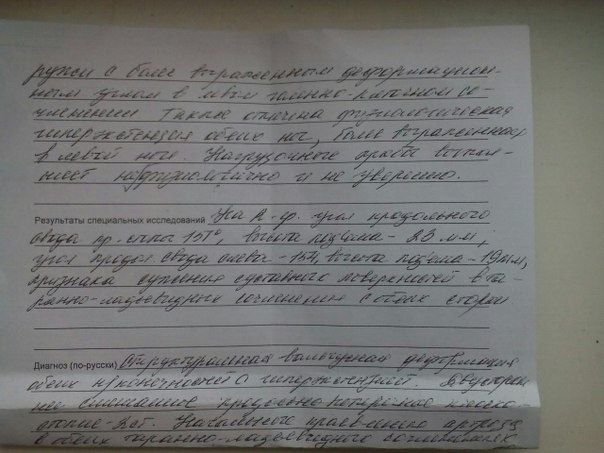 ружи с более выраженным деформацион-
ным углом в левом таранно-пяточном со-
членении. Также отмечена физиологическая
гиперэкстензия обеих ног, более выраженная
в левой ноге. Нагрузочные пробы выпол-
няет и не уверенно.
Результаты специальных исследований На R-гр. угол продольного
свода пр. стопы 151°, высота подъема - 23 мм,
угол продол. свода слева - 154, высота подъема - 19 мм,
признака сужения суставного поверхностей в та-
ранно-ладьевидных сочленения с обеих сторон
Диагноз (по-русски) Структуральная вальгусная деформация
обеих н/конечностей с гиперэкстензией. Двусторон
нее смешанное продольно-поперечное плоско-
стопие - 2 ст. Начального артроза
в обеих таранно-ладьевидного сочленениях